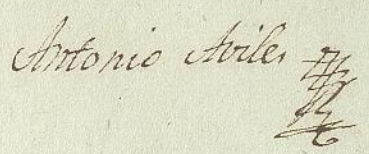 Antonio Aviles